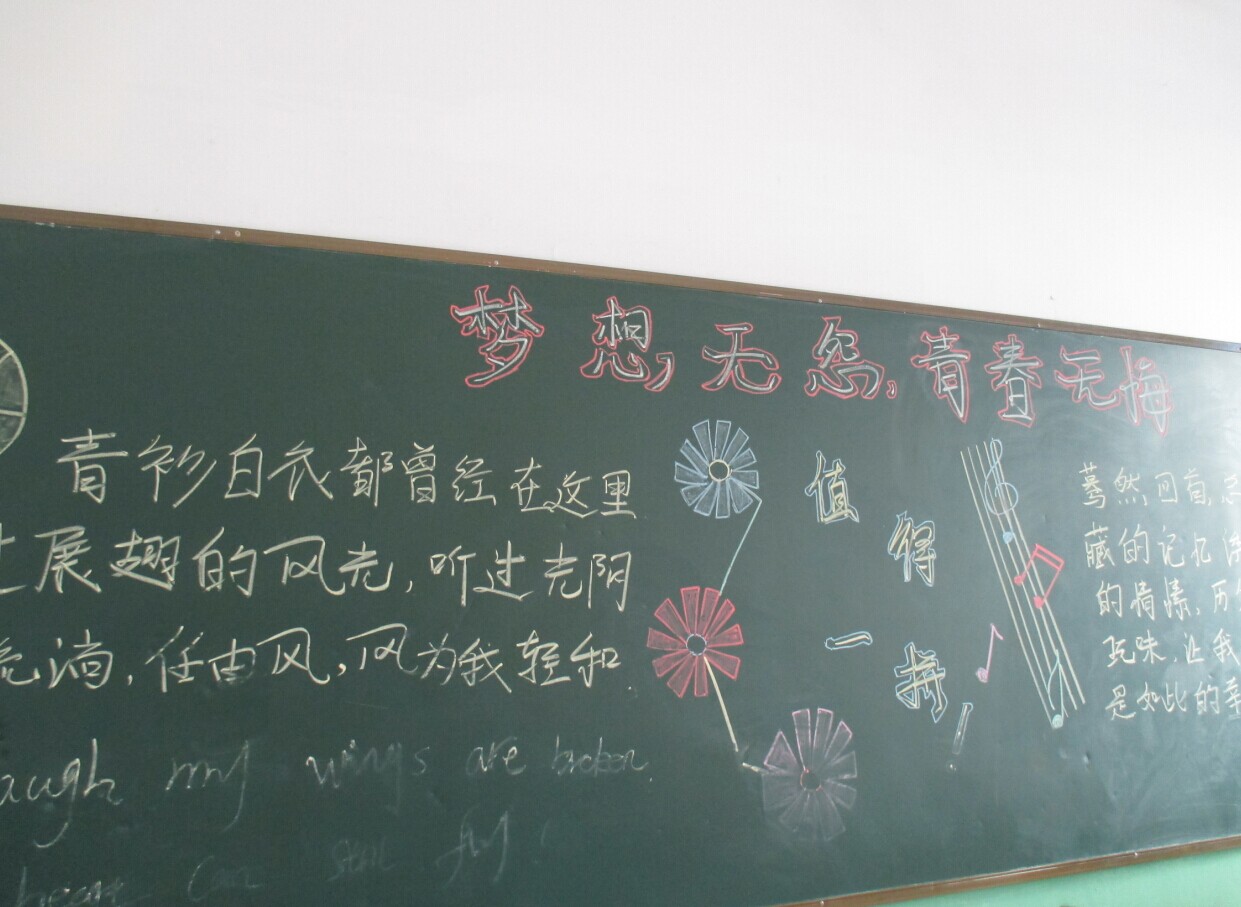 梦想,无怨,青春无悔
青衫白衣都曾经在这里
展翅的风光,听过光阴
淌,任由风,风为我轻和.
my wings are broken.
can still fly
值得
一拼!
蓦然回首,
藏的记忆
的情愫,历
玩味,让我
是如此的幸